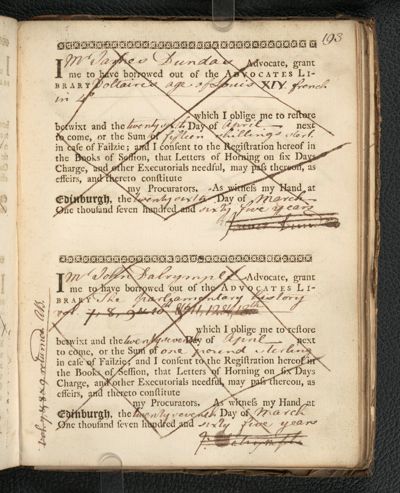 193
I Mr James Dundas Advocate, grant
me to have borrowed out of the ADVOCATES LI-
BRARY Voltaires age of Louis XIV. french
in 4º
which I oblige me to restore
betwixt and the twenty sixth Day of April next
to come, or the Sum of fifteen shillings sterl.
in case of Failzie; and I consent to the Registration hereof in
the Books of Session, that Letters of Horning on six Days
Charge, and other Executorials needful, may pass thereon, as
effeirs, and thereto constitute
my Procurators. As witness my Hand at
Edinburgh, the twenty sixth Day of March
One thousand seven hundred and sixty five years
James Dundas
I Mr John Dalrymple Advocate, grant
me to have borrowed out of the ADVOCATES LI-
BRARY The parliamentary history
vol 7. 8. 9 & 10
which I oblige me to restore
betwixt and the twenty seventh Day of April next
to come, or the Sum of one pound sterling
in case of Failzie; and I consent to the Registration hereof in
the Books of Session, that Letters of Horning on six Days
Charge, and other Executorials needful, may pass thereon, as
effeirs, and thereto constitute
my Procurators. As witness my Hand at
Edinburgh, the twenty seventh Day of March
One thousand seven hundred and sixty five years
J. Dalrymple
Vol. 7 & 8 & 9 returned AB.